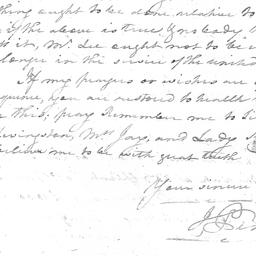 thing ought to be done relative to
if the above is true, your Lady
do it, Mr. Lee ought not to be a
change in the service of the united
If my prayers or wishes are
you are restored to health
this; pray remember me to
Livingston, Mrs Jay, and Lady
believe me to be with great truth
Your sincere